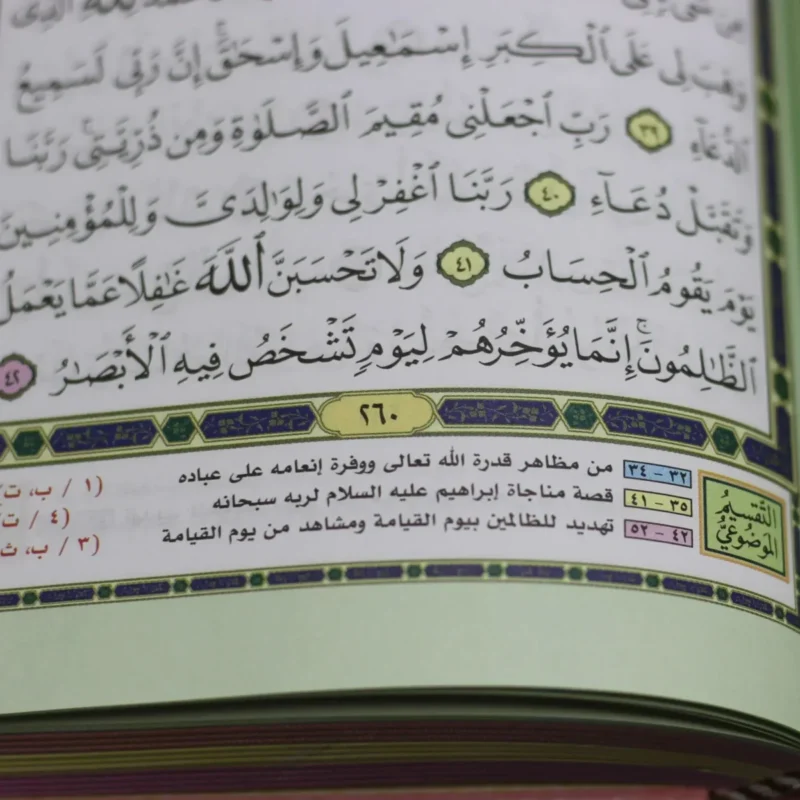 وَهَبَ لِى عَلَى ٱلْكِبَرِ إِسْمَٰعِيلَ وَإِسْحَٰقَۚ إِنَّ رَبِّى لَسَمِيعُ
ٱلدُّعَآءِ ٣٩ رَبِّ ٱجْعَلْنِى مُقِيمَ ٱلصَّلَوٰةِ وَمِن ذُرِّيَّتِىۚ رَبَّنَا
وَتَقَبَّلْ دُعَآءِ ٤٠ رَبَّنَا ٱغْفِرْ لِى وَلِوَٰلِدَىَّ وَلِلْمُؤْمِنِينَ
يَوْمَ يَقُومُ ٱلْحِسَابُ ٤١ وَلَا تَحْسَبَنَّ ٱللَّهَ غَٰفِلًا عَمَّا يَعْمَلُ
ٱلظَّٰلِمُونَۚ إِنَّمَا يُؤَخِّرُهُمْ لِيَوْمٍ تَشْخَصُ فِيهِ ٱلْأَبْصَٰرُ ٤٢
٢٦٠
التقسيم الموضوعي
٣٢ - ٣٤ من مظاهر قدرة الله تعالى ووفرة إنعامه على عباده (١ / ب، ت
٣٥ - ٤١ قصة مناجاة إبراهيم عليه السلام لربه سبحانه (٤ / ت
٤٢ - ٥٢ تهديد للظالمين بيوم القيامة ومشاهد من يوم القيامة (٣ / ب، ث